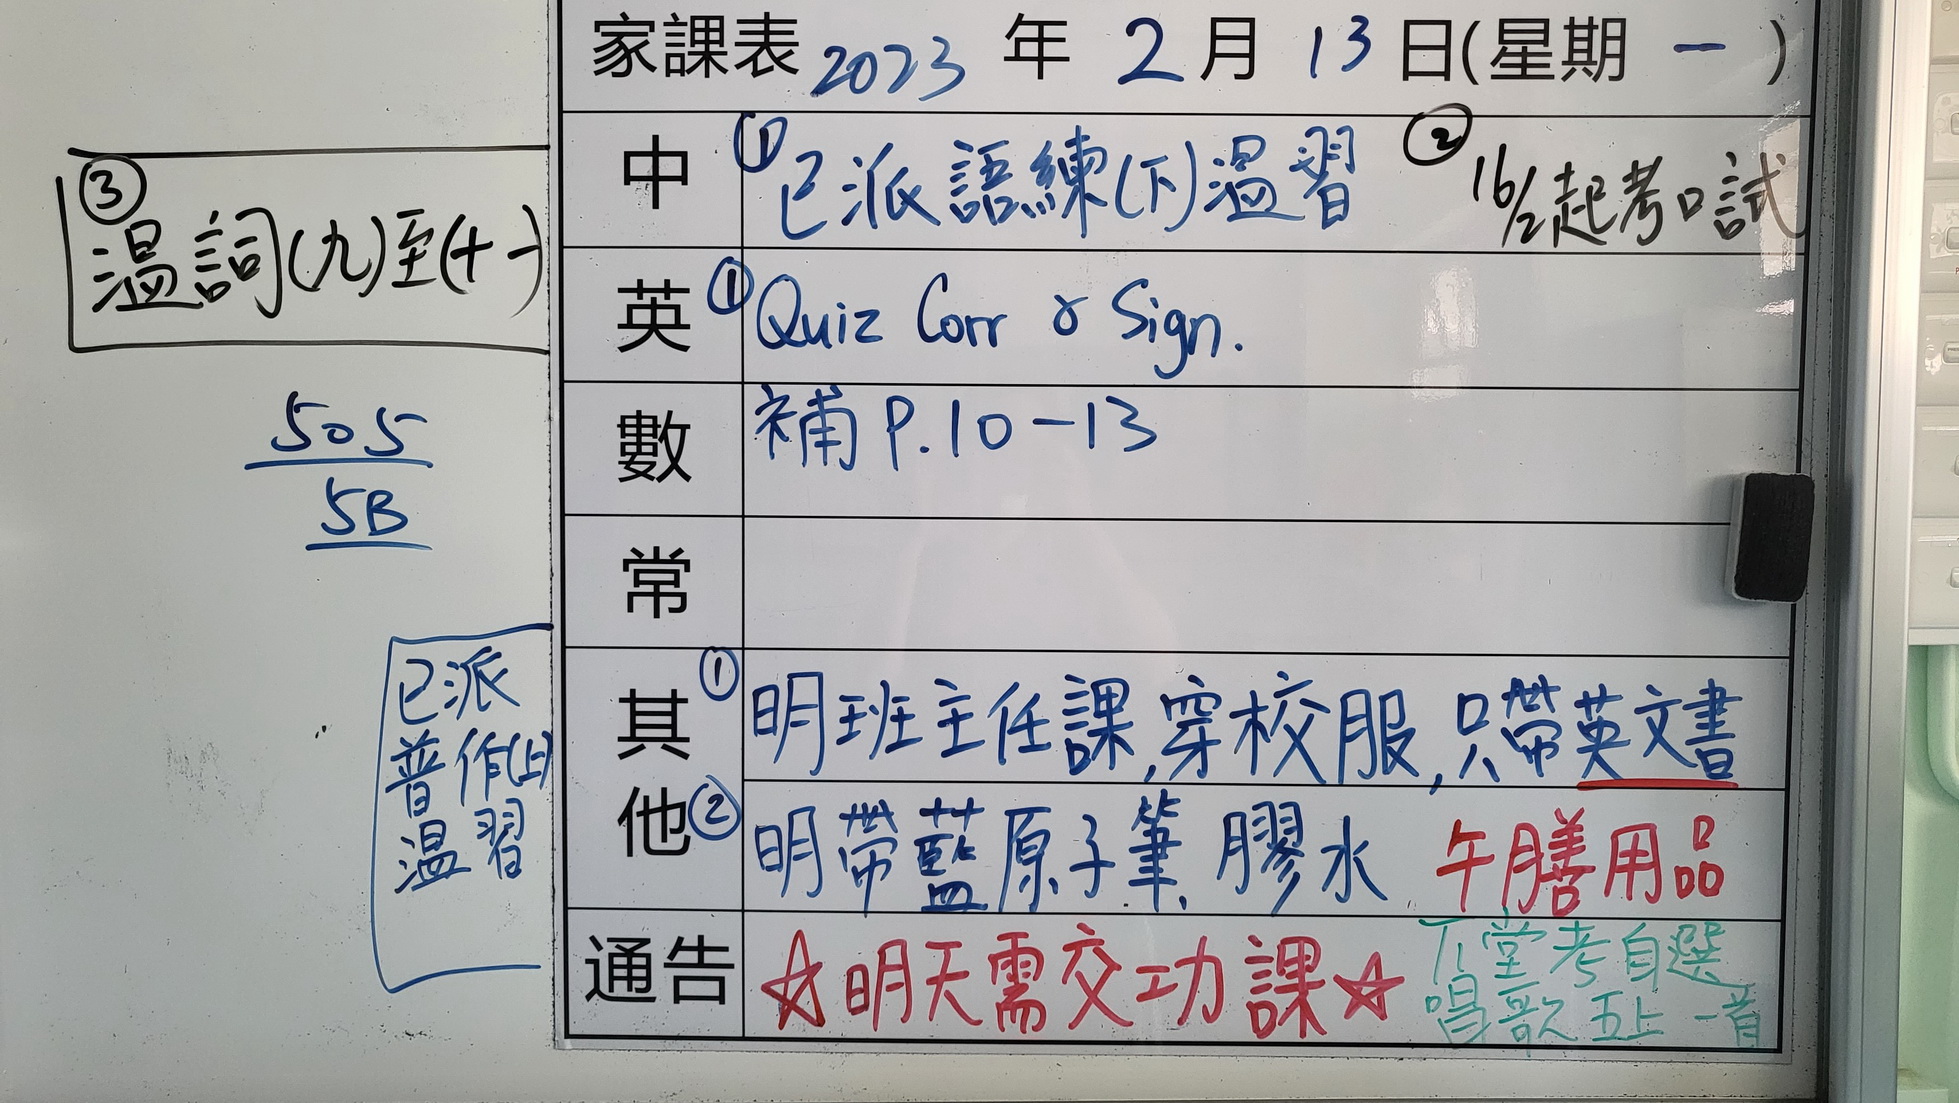 家課表 2023 年 2 月 13 日(星期 一 )
中 ① 已派語練(下)溫習 ② 16/2起考口試
③
溫詞(九)至(十一)
英 ① Quiz Corr & Sign.
數 補 P.10-13
505
5B
常
其他
① 明班主任課,穿校服,只帶英文書
② 明帶藍原子筆、膠水 午膳用品
已派
普作(上)
溫習
通告 ☆明天需交功課☆
下堂考自選
唱歌五上一首